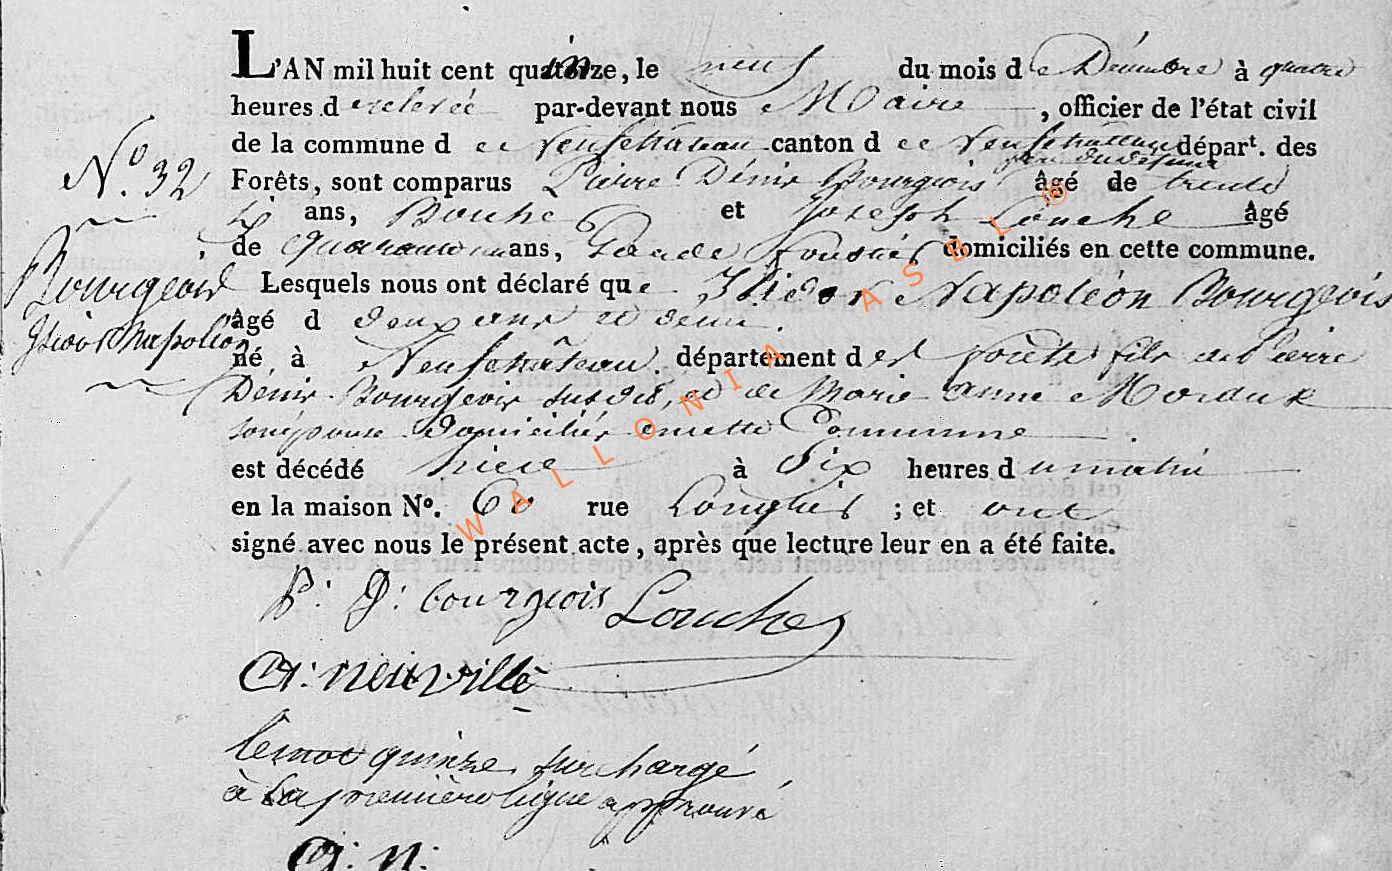 L'AN mil huit cent quinze, le neuf du mois de Décembre à quatre
heures de relevée par-devant nous Maire, officier de l'état civil
de la commune de Neufchateau canton de Neufchateau départ. des
Forêts, sont comparus Pierre Dénis Bourgeois père du défunt âgé de trente
ans, et Joseph Louche âgé
de quarante un ans, Garde Forestier domiciliés en cette commune.
Lesquels nous ont déclaré que Isidor Napoléon Bourgeois
âgé d deux ans et demi.
né à Neufchâteau. département des forêts fils de Pierre
Dénis Bourgeois susdit, et de Marie anne
son épouse domiciliés en cette Commune
est décédé hier à Six heures du matin
en la maison No. 60 rue ; et ont
signé avec nous le présent acte, après que lecture leur en a été faite.
P: D: bourgeois Louche
G: neuville
le mot quinze surchargé
à la première ligne approuvé
G: n:
No. 32
Bourgeois
Isidor Napoléon
WALLONIA ASBL ®